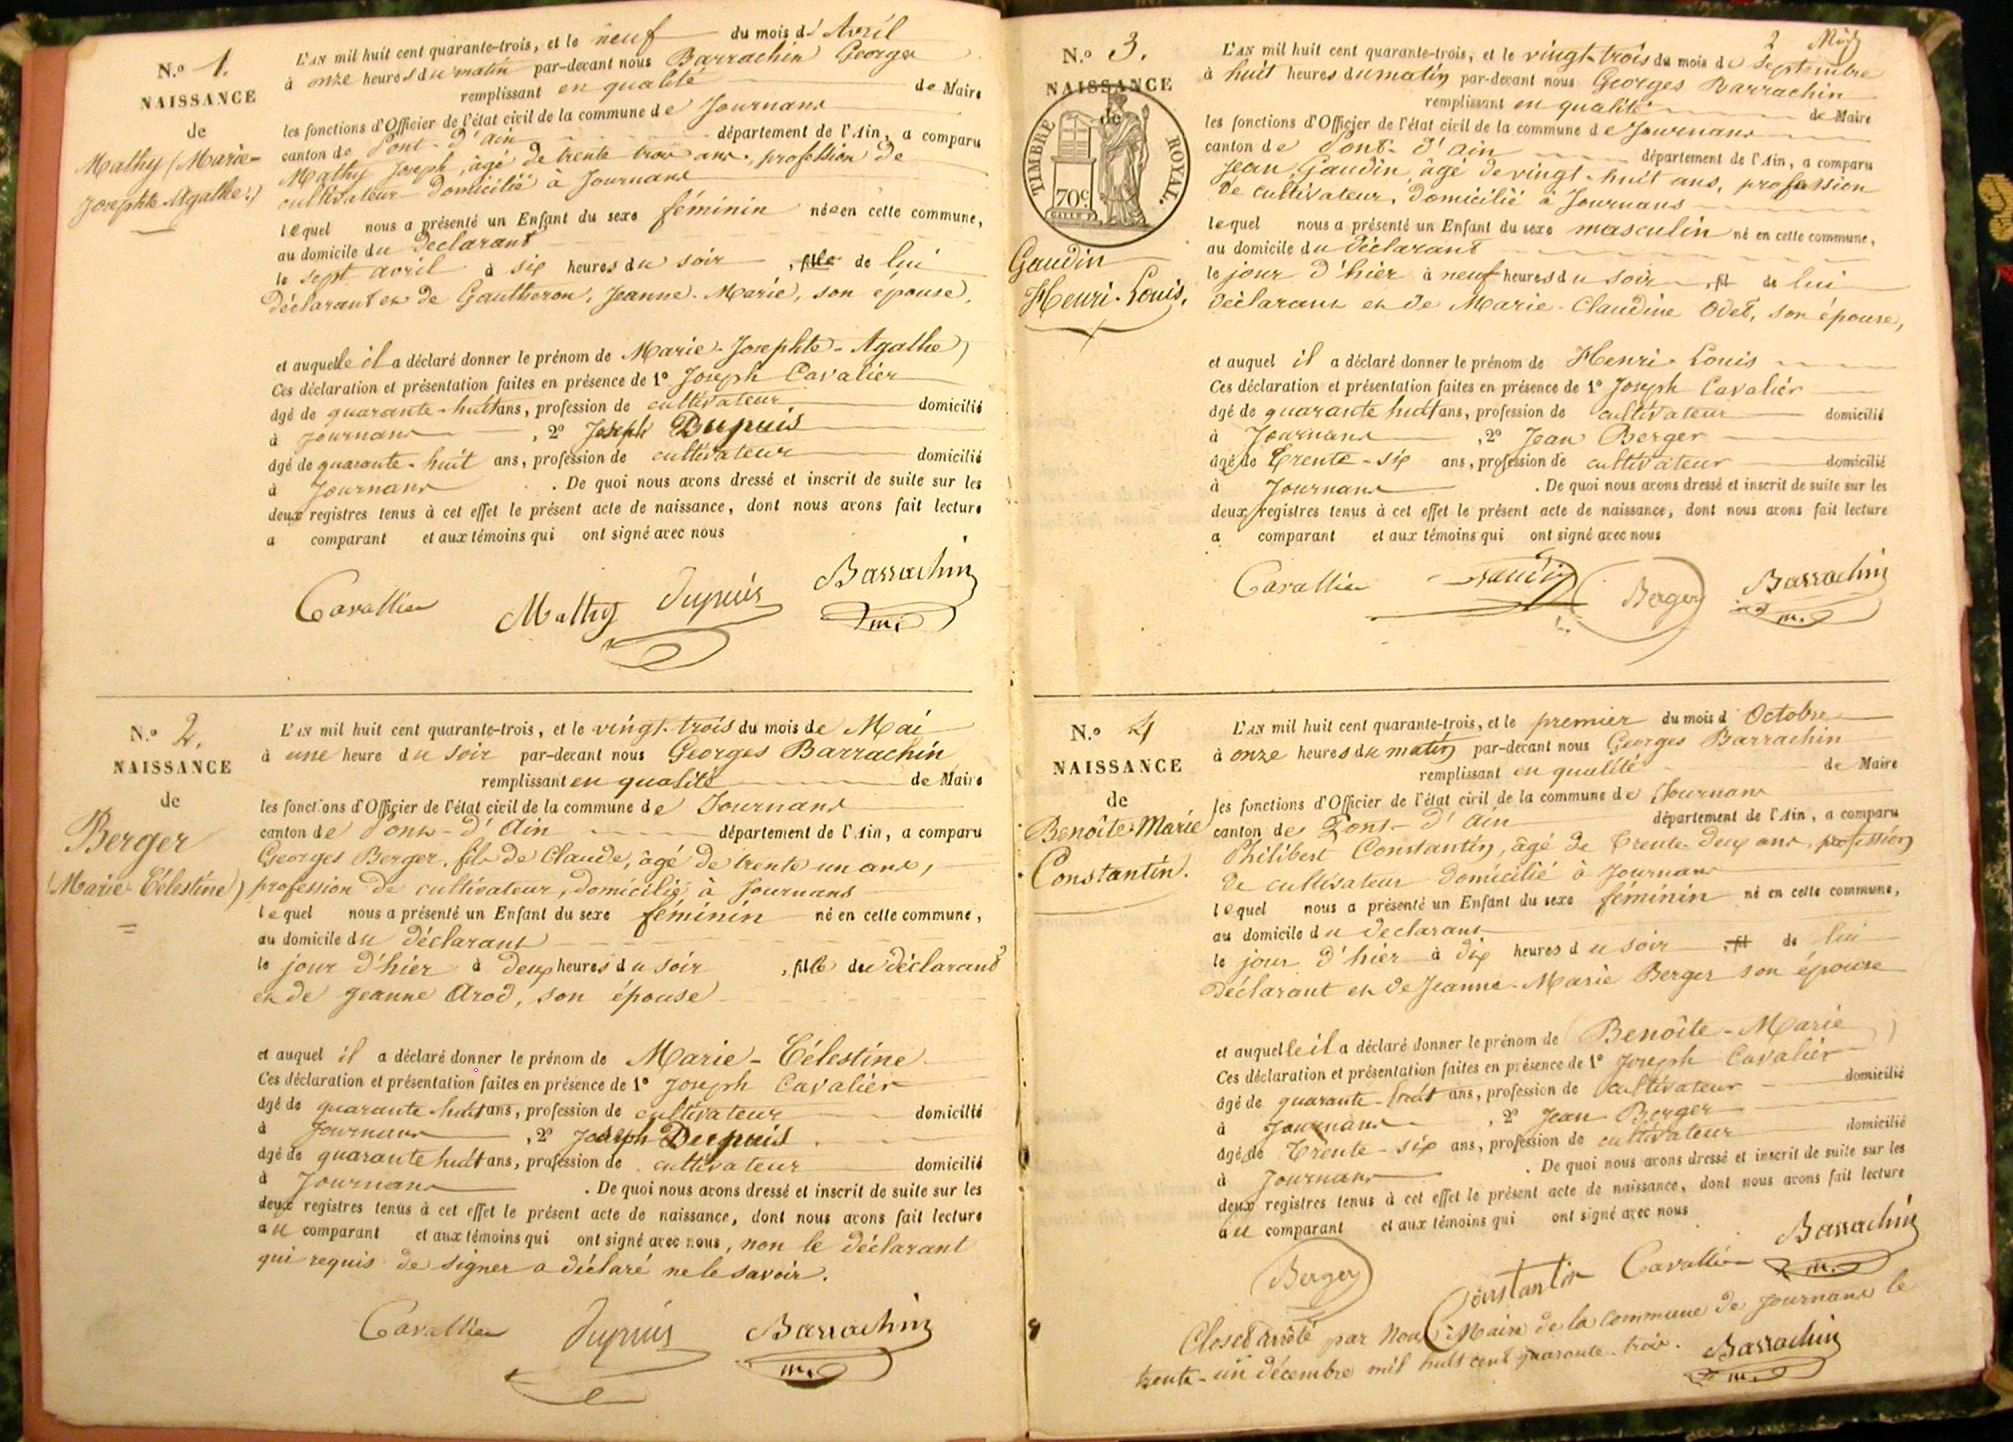 N.º 1.
NAISSANCE
de
Mathy (Marie-
Josephte Agathe.)
L'AN mil huit cent quarante-trois, et le neuf du mois d'Avril
à onze heures du matin par-devant nous Barrachin Georges
remplissant en qualité de Maire
les fonctions d'Officier de l'état civil de la commune de Journans
canton de Pont-d'ain département de l'Ain, a comparu
Mathy Joseph, âgé de trente trois ans, profession de
cultivateur domicilié à Journans
lequel nous a présenté un Enfant du sexe féminin née en cette commune,
au domicile du Déclarant
le sept avril à six heures du soir, fille de lui
Déclarant et de Gautheron, Jeanne-Marie, son épouse,
et auquelle il a déclaré donner le prénom de Marie-Josephte-Agathe
Ces déclaration et présentation faites en présence de 1º Joseph Cavalier
âgé de quarante-huit ans, profession de cultivateur domicilié
à Journans, 2º Joseph Dupuis
âgé de quarante-huit ans, profession de cultivateur domicilié
à Journans. De quoi nous avons dressé et inscrit de suite sur les
deux registres tenus à cet effet le présent acte de naissance, dont nous avons fait lecture
a comparant et aux témoins qui ont signé avec nous
Cavallier Mathy Dupuis Barrachin
m.
N.º 2.
NAISSANCE
de
Berger
(Marie-Célestine)
L'AN mil huit cent quarante-trois, et le vingt-trois du mois de Mai
à une heure du soir par-devant nous Georges Barrachin
remplissant en qualité de Maire
les fonctions d'Officier de l'état civil de la commune de Journans
canton de Pont-d'Ain département de l'Ain, a comparu
Georges Berger, fils de Claude, âgé de trente un ans,
profession de cultivateur, domicilié à Journans
lequel nous a présenté un Enfant du sexe féminin né en cette commune,
au domicile du déclarant
le jour d'hier à deux heures du soir, fille du déclarant
et de Jeanne Arod, son épouse
et auquel il a déclaré donner le prénom de Marie-Célestine
Ces déclaration et présentation faites en présence de 1º Joseph Cavalier
âgé de quarante-huit ans, profession de cultivateur domicilié
à Journans, 2º Joseph Dupuis
âgé de quarante huit ans, profession de cultivateur domicilié
à Journans. De quoi nous avons dressé et inscrit de suite sur les
deux registres tenus à cet effet le présent acte de naissance, dont nous avons fait lecture
au comparant et aux témoins qui ont signé avec nous, non le déclarant
qui requis de signer a déclaré ne le savoir.
Cavallier Dupuis Barrachin
m.
2
N.º 3.
NAISSANCE
de
TIMBRE ROYAL.
70c
Gaudin
Henri-Louis.
L'AN mil huit cent quarante-trois, et le vingt-trois du mois de Septembre
à huit heures du matin par-devant nous Georges Barrachin
remplissant en qualité de Maire
les fonctions d'Officier de l'état civil de la commune de Journans
canton de Pont-d'ain département de l'Ain, a comparu
Jean Gaudin, âgé de vingt-huit ans, profession
de cultivateur, domicilié à Journans
lequel nous a présenté un Enfant du sexe masculin né en cette commune,
au domicile du Déclarant
le jour d'hier à neuf heures du soir, fil de lui
Déclarant et de Marie-Claudine Odet, son épouse,
et auquel il a déclaré donner le prénom de Henri-Louis
Ces déclaration et présentation faites en présence de 1º Joseph Cavalier
âgé de quarante huit ans, profession de cultivateur domicilié
à Journans, 2º Jean Berger
âgé de trente-six ans, profession de cultivateur domicilié
à Journans. De quoi nous avons dressé et inscrit de suite sur les
deux registres tenus à cet effet le présent acte de naissance, dont nous avons fait lecture
a comparant et aux témoins qui ont signé avec nous
Cavallier Gaudin Berger Barrachin
m.
N.º 4
NAISSANCE
de
Benoîte-Marie
Constantin.
L'AN mil huit cent quarante-trois, et le premier du mois d'Octobre
à onze heures du matin par-devant nous Georges Barrachin
remplissant en qualité de Maire
les fonctions d'Officier de l'état civil de la commune de Journans
canton de Pont-d'ain département de l'Ain, a comparu
Philibert Constantin, âgé de trente-deux ans, profession
de cultivateur domicilié à Journans
lequel nous a présenté un Enfant du sexe féminin né en cette commune,
au domicile du déclarant
le jour d'hier à dix heures du soir, fil de lui
Déclarant et de Jeanne-Marie Berger son épouse
et auquelle il a déclaré donner le prénom de Benoîte-Marie
Ces déclaration et présentation faites en présence de 1º Joseph Cavalier
âgé de quarante-huit ans, profession de cultivateur domicilié
à Journans, 2º Jean Berger
âgé de trente-six ans, profession de cultivateur domicilié
à Journans. De quoi nous avons dressé et inscrit de suite sur les
deux registres tenus à cet effet le présent acte de naissance, dont nous avons fait lecture
au comparant et aux témoins qui ont signé avec nous
Berger Constantin Cavallier Barrachin
m.
Clos et arrêté par Nous Maire de la commune de Journans le
trente-un décembre mil huit cent quarante-trois. Barrachin
m.